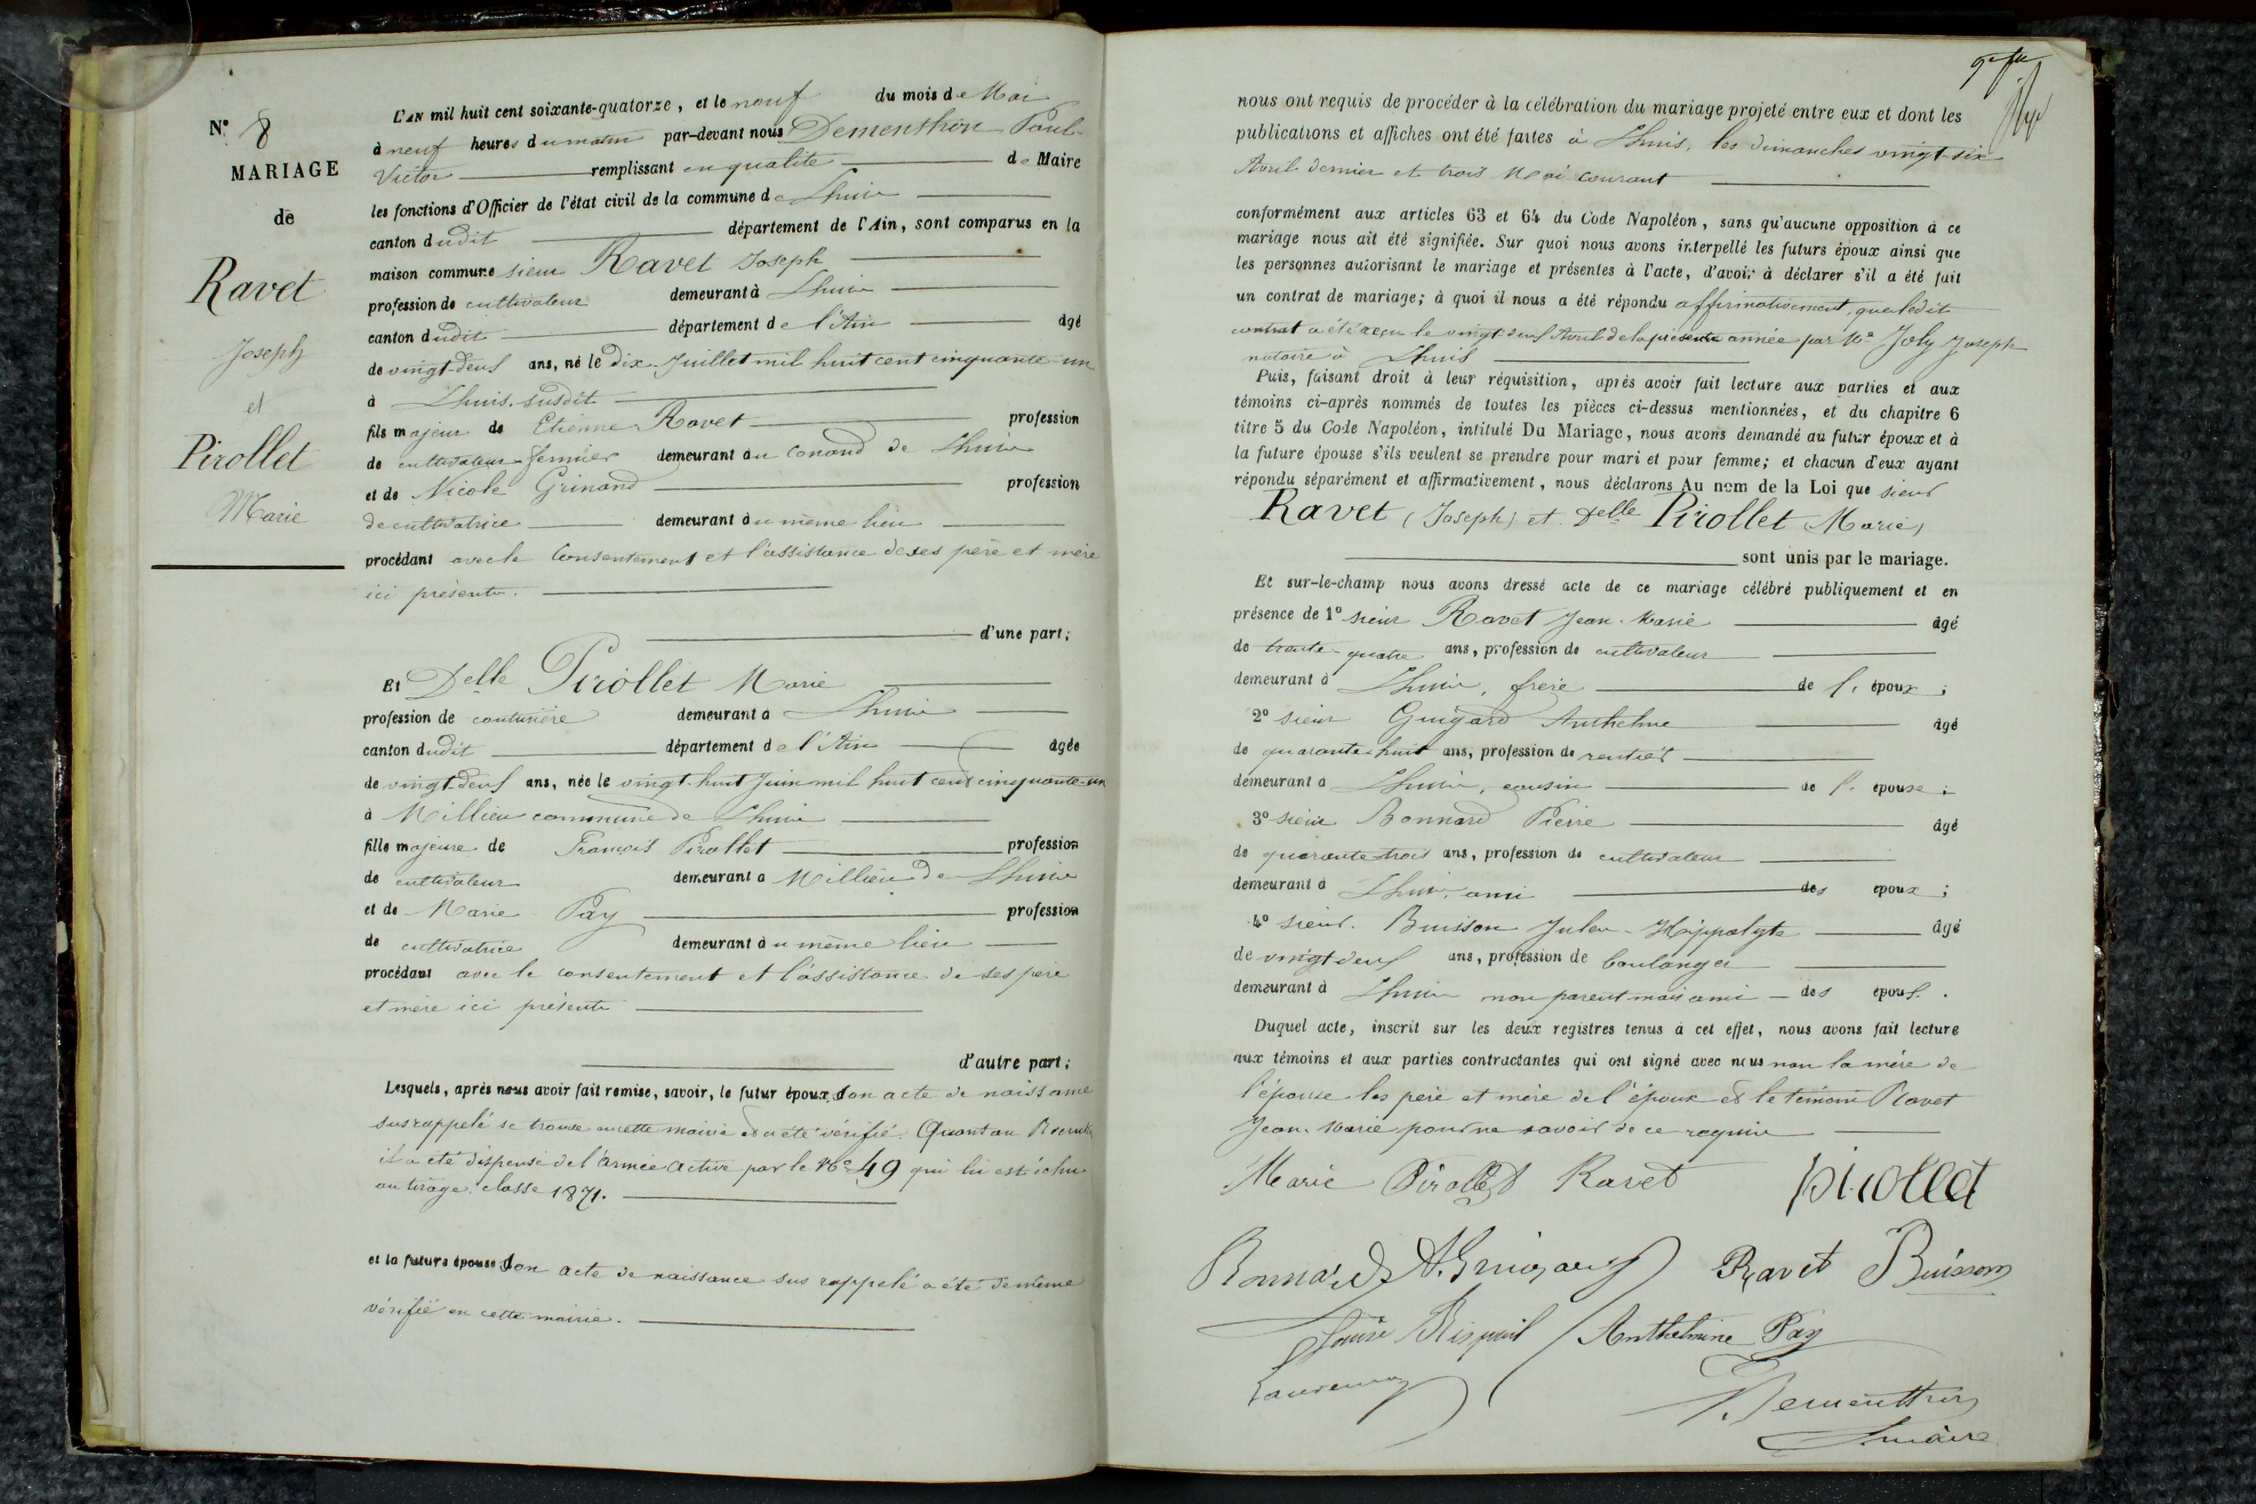 N.° 8
MARIAGE
de
Ravet
Joseph
et
Pirollet
Marie
L'AN mil huit cent soixante-quatorze, et le neuf du mois de Mai
à neuf heures du matin par-devant nous Dementhon Paul-
Victor remplissant en qualité de Maire
les fonctions d'Officier de l'état civil de la commune de Lhuis
canton dudit département de l'Ain, sont comparus en la
maison commune sieur Ravet Joseph
profession de cultivateur demeurant à Lhuis
canton dudit département de l'Ain âgé
de vingt-deux ans, né le dix Juillet mil huit cent cinquante-un
à Lhuis susdit
fils majeur de Etienne Ravet profession
de cultivateur-fermier demeurant au Conand de Lhuis
et de Nicole Grinand profession
de cultivatrice demeurant au même lieu
procédant avec le Consentement et l'assistance de ses père et mère
ici présents.
d'une part;
Et Delle Pirollet Marie
profession de couturière demeurant à Lhuis
canton dudit département de l'Ain âgée
de vingt-deux ans, née le vingt-huit Juin mil huit cent cinquante-un
à Millieu commune de Lhuis
fille majeure de François Pirollet profession
de cultivateur demeurant à Millieu de Lhuis
et de Marie Pay profession
de cultivatrice demeurant au même lieu
procédant avec le consentement et l'assistance de ses père
et mère ici présents
d'autre part;
Lesquels, après nous avoir fait remise, savoir, le futur époux, son acte de naissance
susrappelé se trouve en cette mairie et a été vérifié. Quant au
il a été dispensé de l'armée active par le No 49 qui lui est échu
au tirage classe 1871.
et la future épouse son acte de naissance sus rappelé a été de même
vérifié en cette mairie.
nous ont requis de procéder à la célébration du mariage projeté entre eux et dont les
publications et affiches ont été faites à Lhuis, les dimanches vingt-six
Avril dernier et trois Mai courant
conformément aux articles 63 et 64 du Code Napoléon, sans qu'aucune opposition à ce
mariage nous ait été signifiée. Sur quoi nous avons interpellé les futurs époux ainsi que
les personnes autorisant le mariage et présentes à l'acte, d'avoir à déclarer s'il a été fait
un contrat de mariage; à quoi il nous a été répondu affirmativement, que ledit
contrat a été reçu le vingt-deux Avril de la présente année par Me Joly Joseph
notaire à Lhuis
Puis, faisant droit à leur réquisition, après avoir fait lecture aux parties et aux
témoins ci-après nommés de toutes les pièces ci-dessus mentionnées, et du chapitre 6
titre 5 du Code Napoléon, intitulé Du Mariage, nous avons demandé au futur époux et à
la future épouse s'ils veulent se prendre pour mari et pour femme; et chacun d'eux ayant
répondu séparément et affirmativement, nous déclarons Au nom de la Loi que sieur
Ravet (Joseph) et Delle Pirollet (Marie)
sont unis par le mariage.
Et sur-le-champ nous avons dressé acte de ce mariage célébré publiquement et en
présence de 1° sieur Ravet Jean-Marie âgé
de trente-quatre ans, profession de cultivateur
demeurant à Lhuis, frère de l' époux;
2° sieur Guigard Anthelme âgé
de quarante-huit ans, profession de rentier
demeurant à Lhuis, cousin de l' épouse;
3° sieur Bonnard Pierre âgé
de quarante-trois ans, profession de cultivateur
demeurant à Lhuis, ami des époux;
4° sieur Buisson Jules-Hippolyte âgé
de vingt-deux ans, profession de boulanger
demeurant à Lhuis non parent mais ami des époux.
Duquel acte, inscrit sur les deux registres tenus à cet effet, nous avons fait lecture
aux témoins et aux parties contractantes qui ont signé avec nous non la mère de
l'épouse les père et mère de l'époux et le témoin Ravet
Jean-Marie pour ne savoir de ce requis
Marie Pirollet Ravet pirollet
Bonnard A. Guigard Ravet Buisson
Louise Anthelmine Pay
V. Dementhon
maire